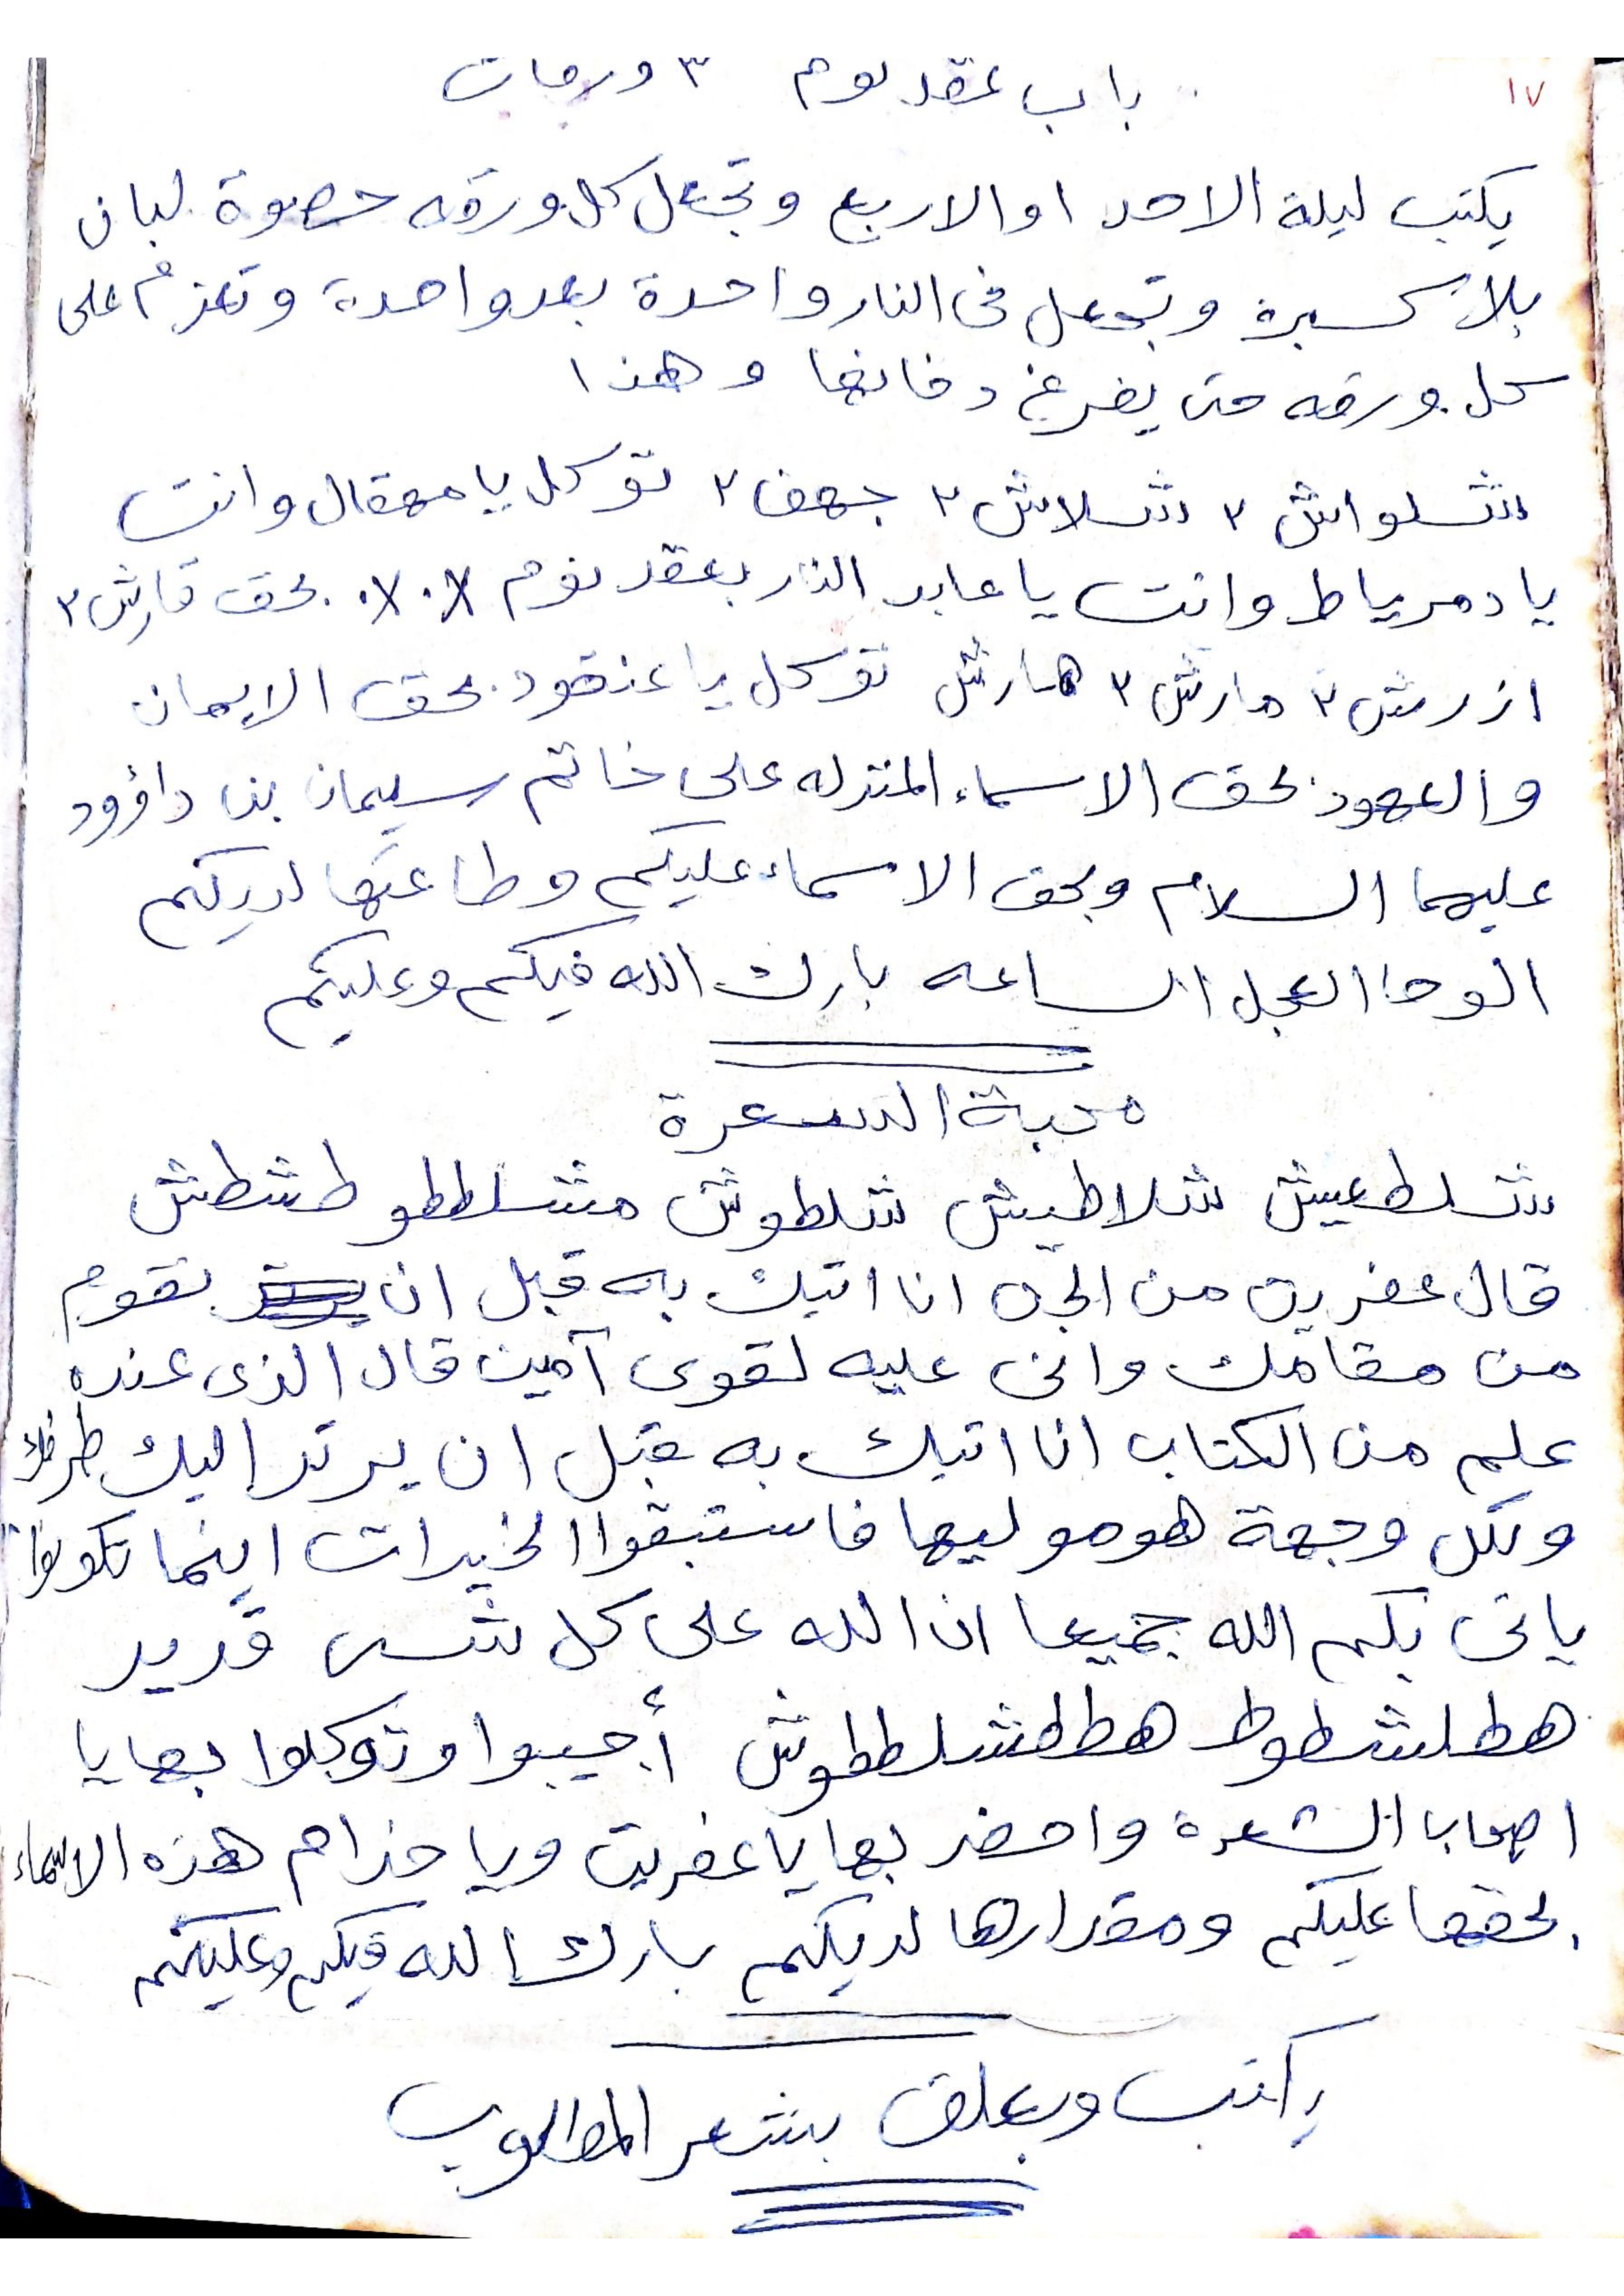 ١٧
باب عقد نوم ٣ ورقات
يكتب ليلة الاحد او الاربع وتجعل كل ورقه حصوة لبان
بلا كسبره وتجعل فى النار واحدة بعد واحدة وتعزم على
كل ورقه حتى يفرغ دخانها وهذا
شلواش ٢ شلاش ٢ جهف ٢ توكل يا مهقال وانت
يا دمرياط وانت يا عابد النار بعقد نوم بحق قارش ٢
ازرش ٢ مارش ٢ هارش توكل يا عنقود بحق الايمان
والعهود بحق الاسماء المنزله على خاتم سليمان بن داؤود
عليهما السلام وبحق الاسماء عليكم وطاعتها لديكم
الوحا العجل الساعه بارك الله فيكم وعليكم
محبة الشعرة
شلطعيش شلاطيش شلطوش مشلططو طشطش
قال عفريت من الجن انا اتيك به قبل ان تقوم
من مقامك وانى عليه لقوى آمين قال الذى عنده
علم من الكتاب انا اتيك به قبل ان يرتد اليك طرفك
ولكل وجهة هو موليها فاستبقوا الخيرات اينما تكونوا
ياتى بكم الله جميعا ان الله على كل شى قدير
هطلشطوط هططشلططوش أجيبوا وتوكلوا بها يا
اصحاب الشعرة واحضر بها يا عفريت ويا خدام هذه الاسماء
بحقها عليكم ومقدارها لديكم بارك الله فيكم وعليكم
يكتب ويعلق بشعر المطلوب